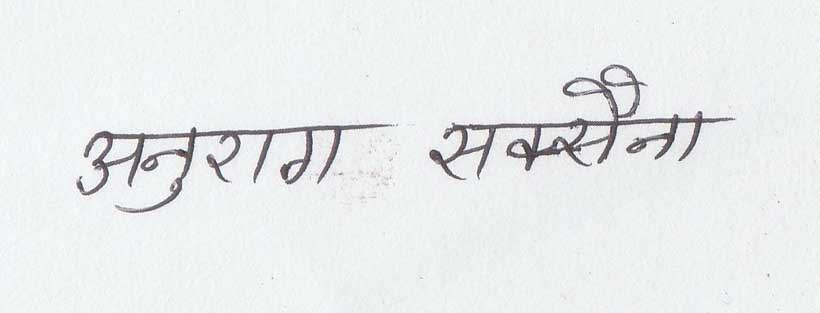 अनुराग सक्सैना